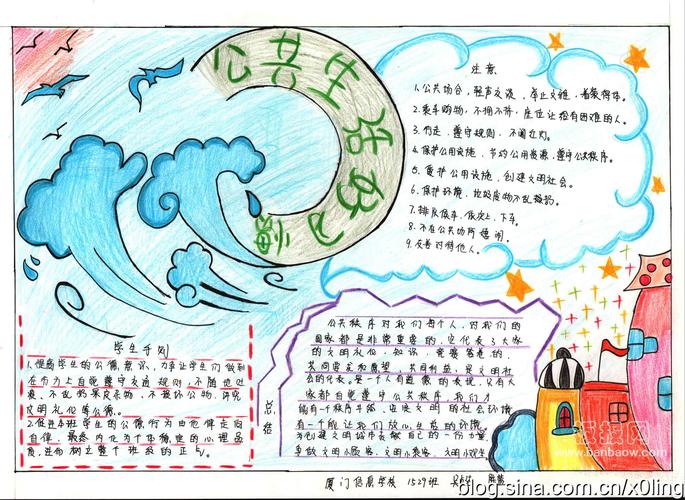 公共生活好习惯
注意
1.公共场合，轻声交谈，举止文雅，着装得体。
2.乘车购物，不拥不挤，座位让给有困难的人。
3.行走，遵守规则，不闯红灯。
4.保护公用设施，节约公用资源，遵守公共秩序。
5.爱护公用设施，创建文明社会。
6.保护环境，垃圾废物不乱
7.排队候车，依次上、下车。
8.不在公共场所
9.友善对待他人。
学生守则
1.提高学生的公德意识，力争让学生们做到
在行为上自觉遵守交通规则，不随地吐
痰，不乱扔果皮杂物，不损坏公物，讲究
文明礼仪等公德。
2.促进本班学生的公德行为由他律走向
自律，最终内化为个体稳定的心理品
质，进而树立整个班级的正气。
总结
公共秩序对我们每个人，对我们的
国家都是非常重要的，它代表了大家
的文明礼仪，知识，
共同
会的代表，是一个人有道德的表现，只有大
家都自觉遵守公共秩序，我们才
能有一个秩序
有一个能让我们放心
为创建文明城市贡献自己的一份力量，
争做文明小顾客，文明小乘客，文明小观众
厦门信息学校 1527班
报网
www.banbaow.com
blog.sina.com.cn/x0ling